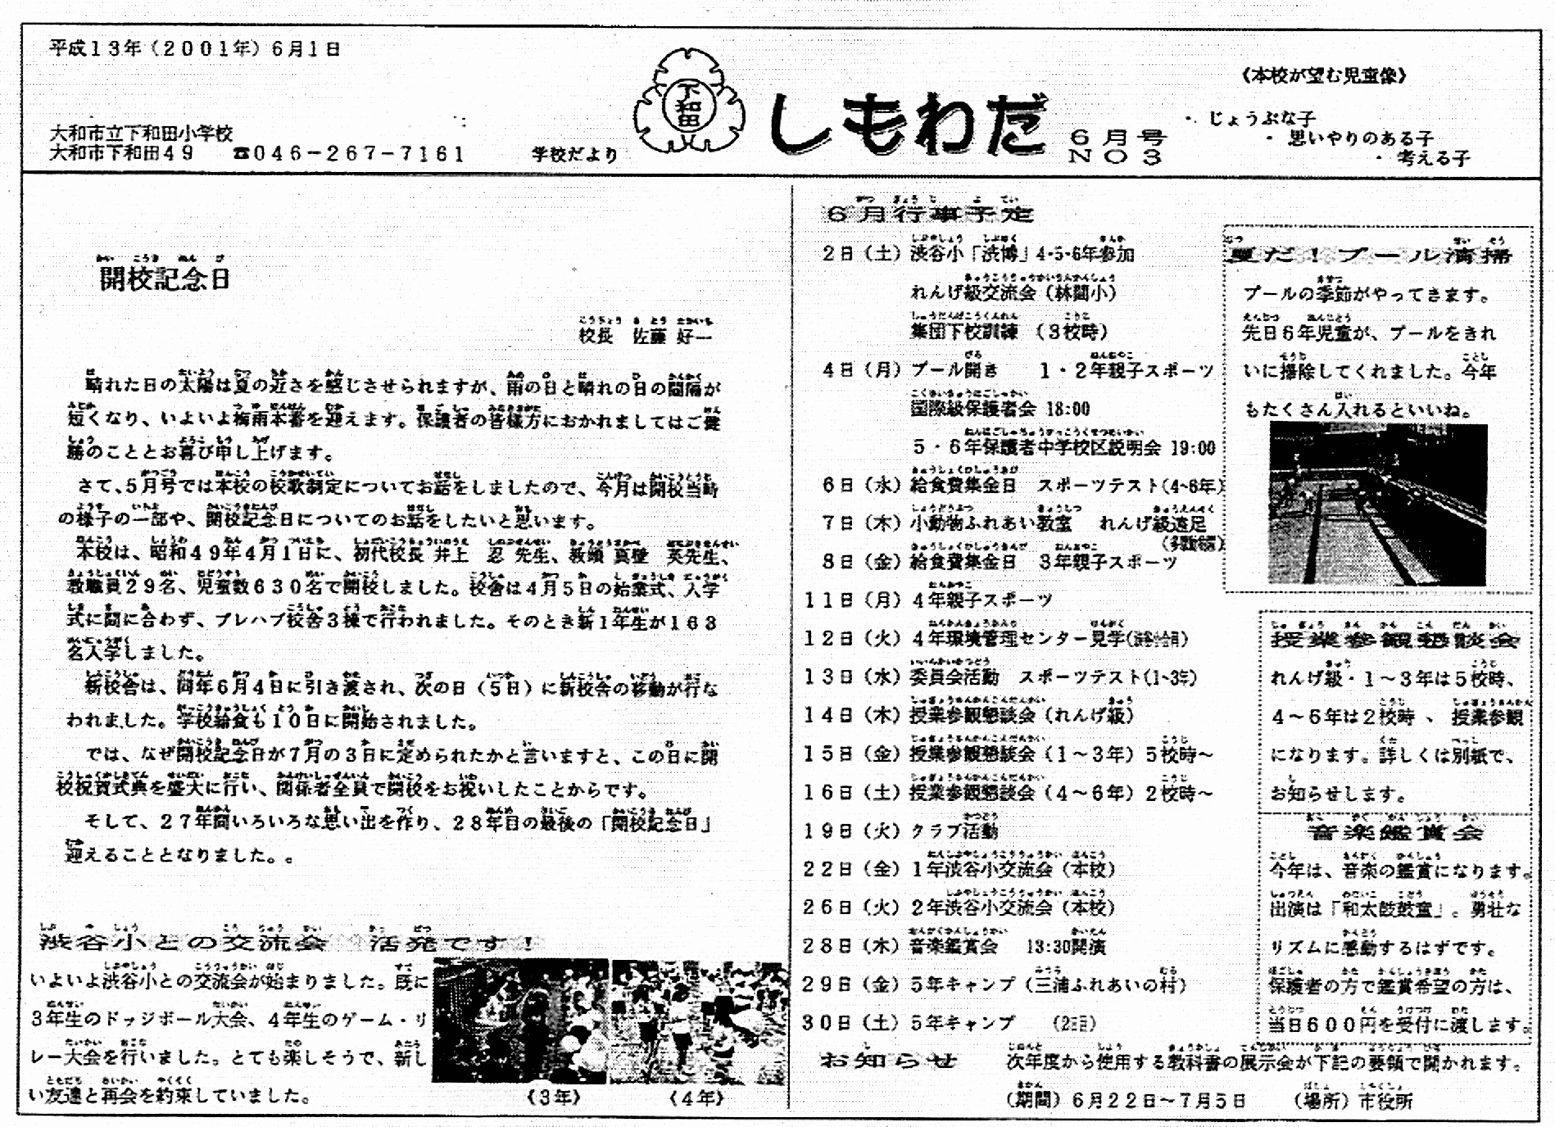 平成13年(2001年)6月1日
大和市立下和田小学校
大和市下和田49 ☎046-267-7161
学校だより
下和田
しもわだ
6月号
NO3
《本校が望む児童像》
・じょうぶな子
・思いやりのある子
・考える子
開校記念日
校長 佐藤 好一
晴れた日の太陽は夏の近さを感じさせられますが、雨の日と晴れの日の間隔が
短くなり、いよいよ梅雨本番を迎えます。保護者の皆様方におかれましてはご健
勝のこととお喜び申し上げます。
さて、5月号では本校の校歌制定についてお話をしましたので、今月は開校当時
の様子の一部や、開校記念日についてのお話をしたいと思います。
本校は、昭和49年4月1日に、初代校長 井上 忍 先生、教頭 真壁 英先生、
教職員29名、児童数630名で開校しました。校舎は4月5日の始業式、入学
式に間に合わず、プレハブ校舎3棟で行われました。そのとき新1年生が163
名入学しました。
新校舎は、同年6月4日に引き渡され、次の日(5日)に新校舎の移動が行な
われました。学校給食も10日に開始されました。
では、なぜ開校記念日が7月の3日に定められたかと言いますと、この日に開
校祝賀式典を盛大に行い、関係者全員で開校をお祝いしたことからです。
そして、27年間いろいろな思い出を作り、28年目の最後の「開校記念日」
迎えることとなりました。。
渋谷小との交流会 活発です!
いよいよ渋谷小との交流会が始まりました。既に
3年生のドッジボール大会、4年生のゲーム・リ
レー大会を行いました。とても楽しそうで、新し
い友達と再会を約束していました。
《3年》 《4年》
6月行事予定
2日(土)渋谷小「渋博」4・5・6年参加
れんげ級交流会(林間小)
集団下校訓練 (3校時)
4日(月)プール開き 1・2年親子スポーツ
国際級保護者会 18:00
5・6年保護者中学校区説明会 19:00
6日(水)給食費集金日 スポーツテスト(4~6年)
7日(木)小動物ふれあい教室 れんげ級遠足
8日(金)給食費集金日 3年親子スポーツ
11日(月)4年親子スポーツ
12日(火)4年環境管理センター見学
13日(水)委員会活動 スポーツテスト(1~3年)
14日(木)授業参観懇談会(れんげ級)
15日(金)授業参観懇談会(1~3年)5校時~
16日(土)授業参観懇談会(4~6年)2校時~
19日(火)クラブ活動
22日(金)1年渋谷小交流会(本校)
26日(火)2年渋谷小交流会(本校)
28日(木)音楽鑑賞会 13:30開演
29日(金)5年キャンプ(三浦ふれあいの村)
30日(土)5年キャンプ (2日目)
夏だ!プール清掃
プールの季節がやってきます。
先日6年児童が、プールをきれ
いに掃除してくれました。今年
もたくさん入れるといいね。
授業参観懇談会
れんげ級・1~3年は5校時、
4~6年は2校時、授業参観
になります。詳しくは別紙で、
お知らせします。
音楽鑑賞会
今年は、音楽の鑑賞になります。
出演は「和太鼓鼓童」。勇壮な
リズムに感動するはずです。
保護者の方で鑑賞希望の方は、
当日600円を受付に渡します。
お知らせ 次年度から使用する教科書の展示会が下記の要領で開かれます。
(期間)6月22日~7月5日 (場所)市役所